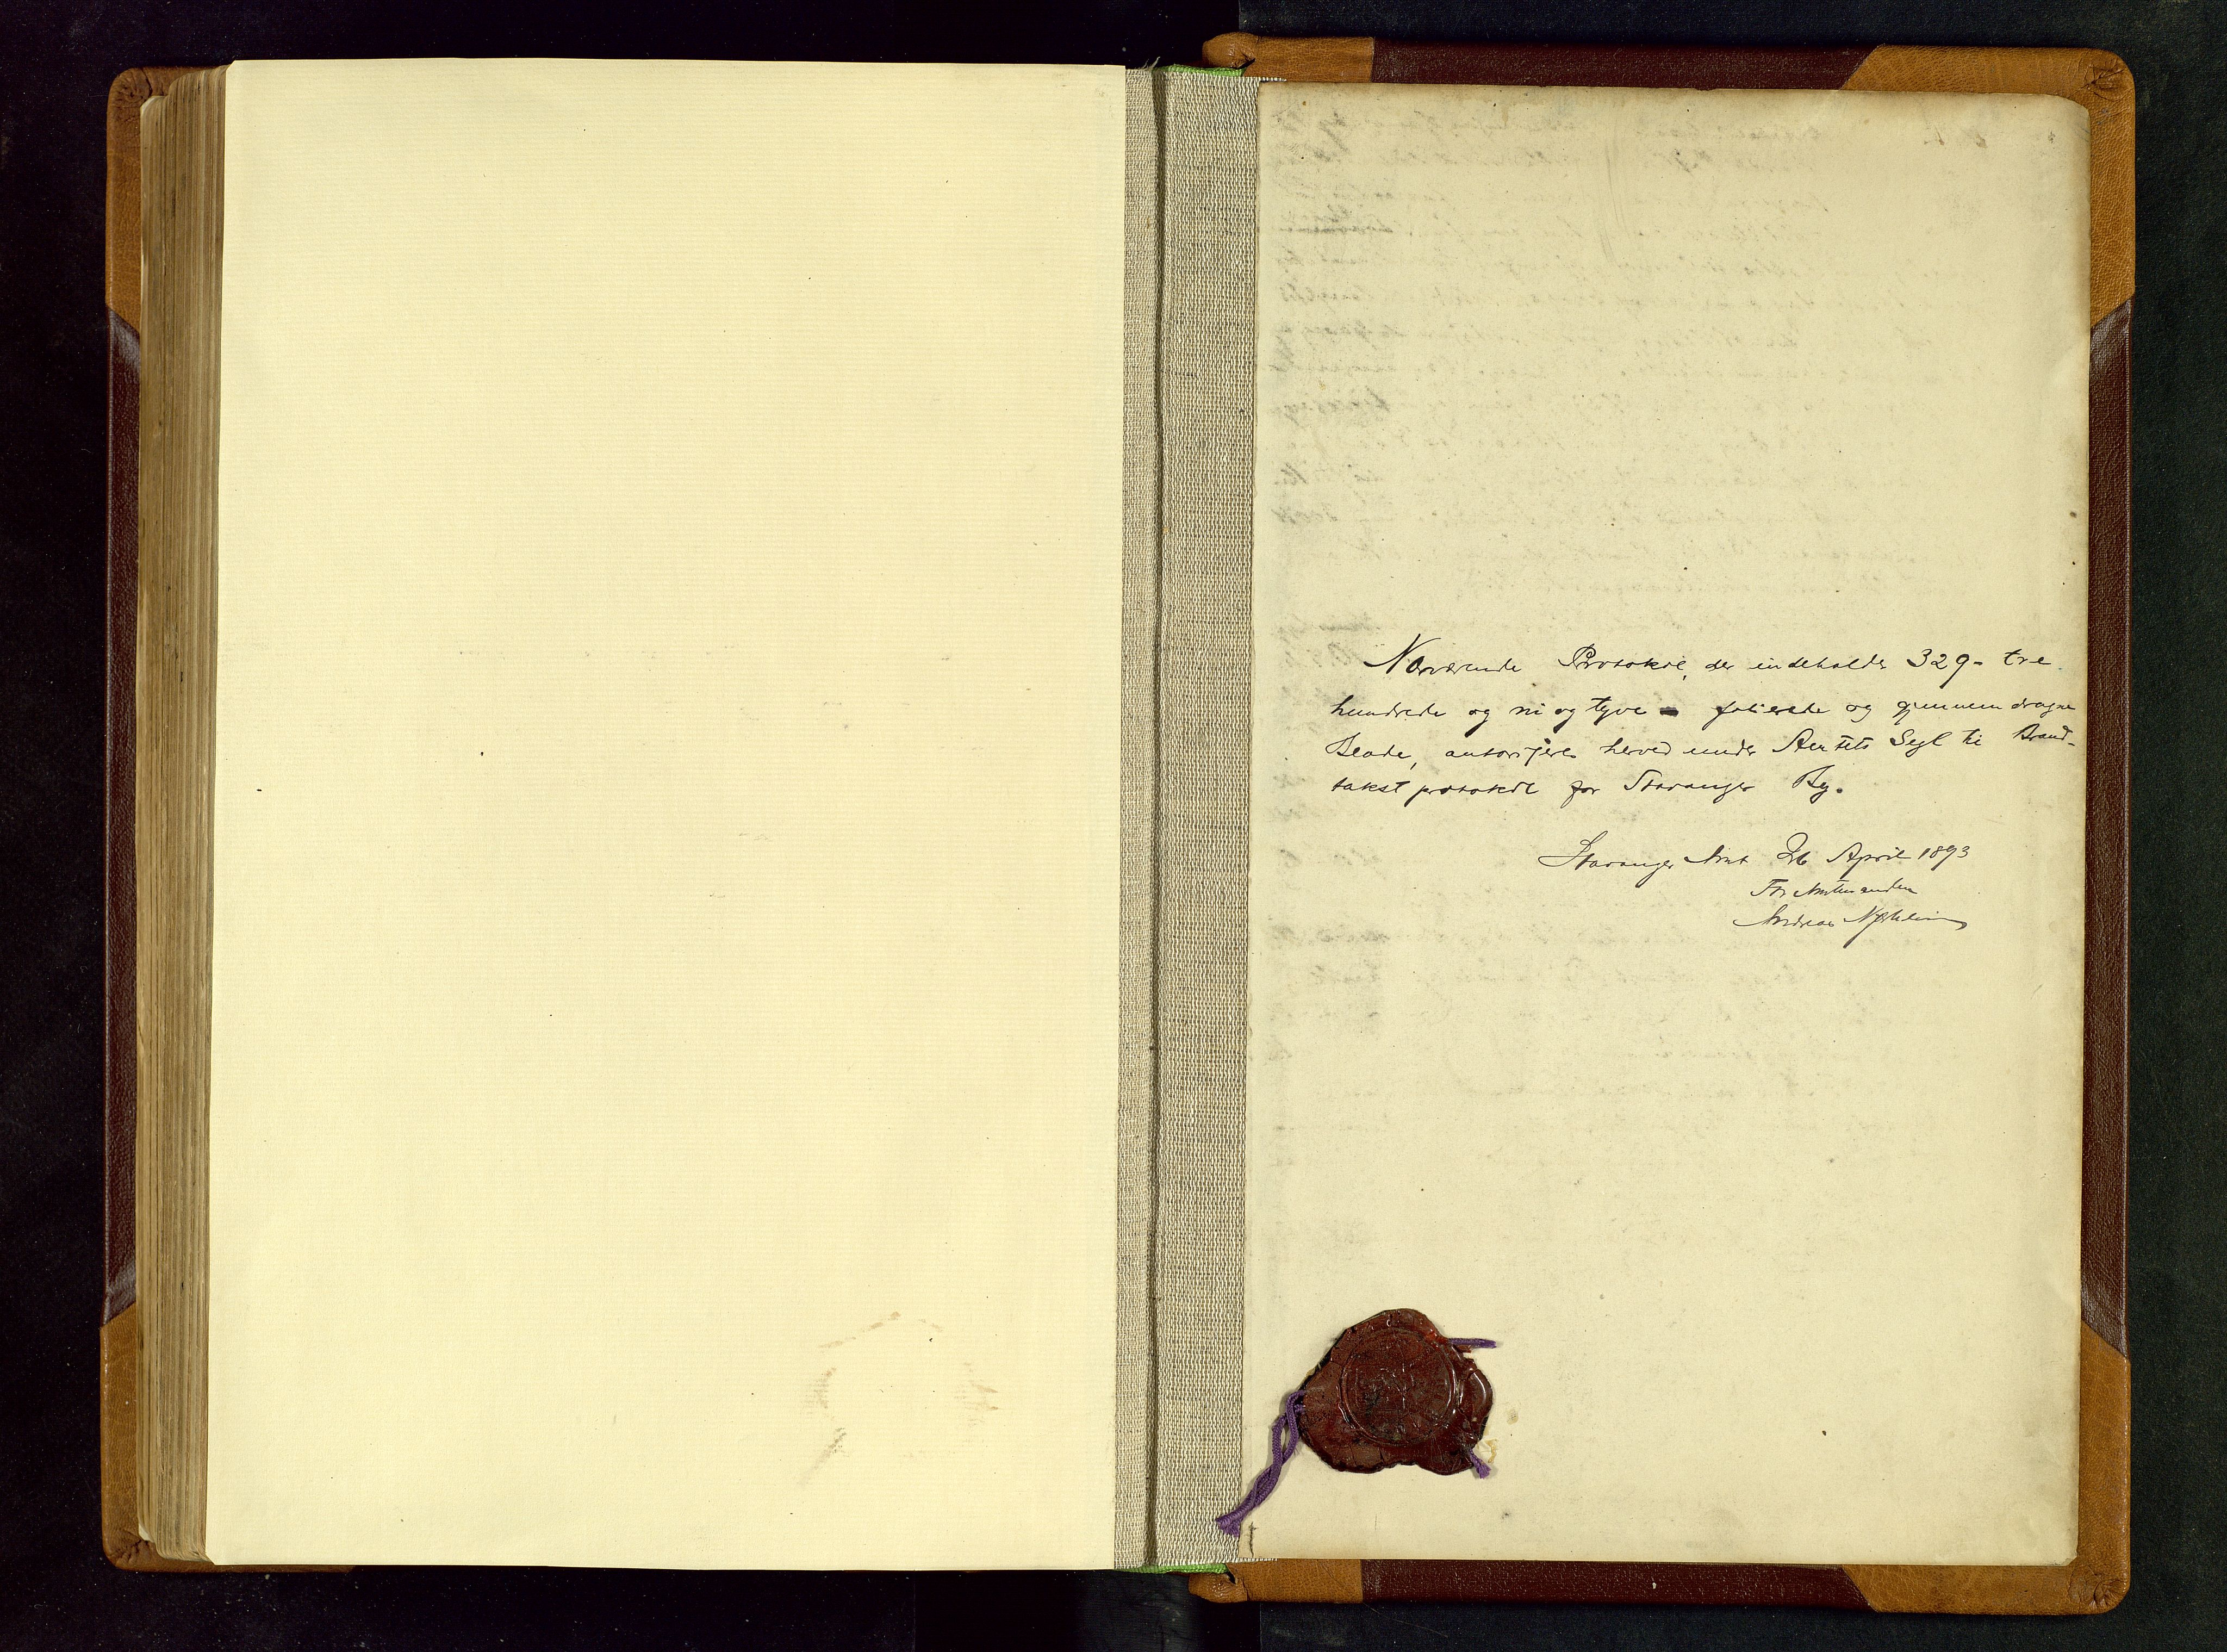 Nærværende Protokol, der indeholder 329 - tre
hundrede og ni og tyve - folierede og gjennemdragne
Blade, autoriseres herved under Amtets Segl til Brand-
takstprotokol for Stavanger By.
Stavanger Amt 26 April 1893
For Amtmanden
Andreas